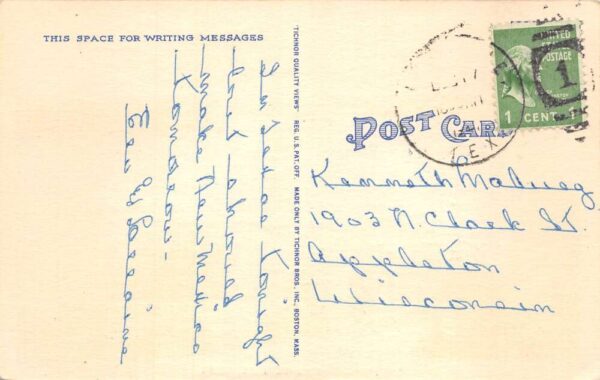 THIS SPACE FOR WRITING MESSAGES
In Texas tonight
but should
make New Mexico
tomorrow -
TICHNOR QUALITY VIEWS REG. U.S. PAT. OFF. MADE ONLY BY TICHNOR BROS. INC., BOSTON, MASS.
POST CARD
UNITED
POSTAGE
1 CENT
1
TEX
Kenneth
1903 N. Clark St.
Appleton
Wisconsin